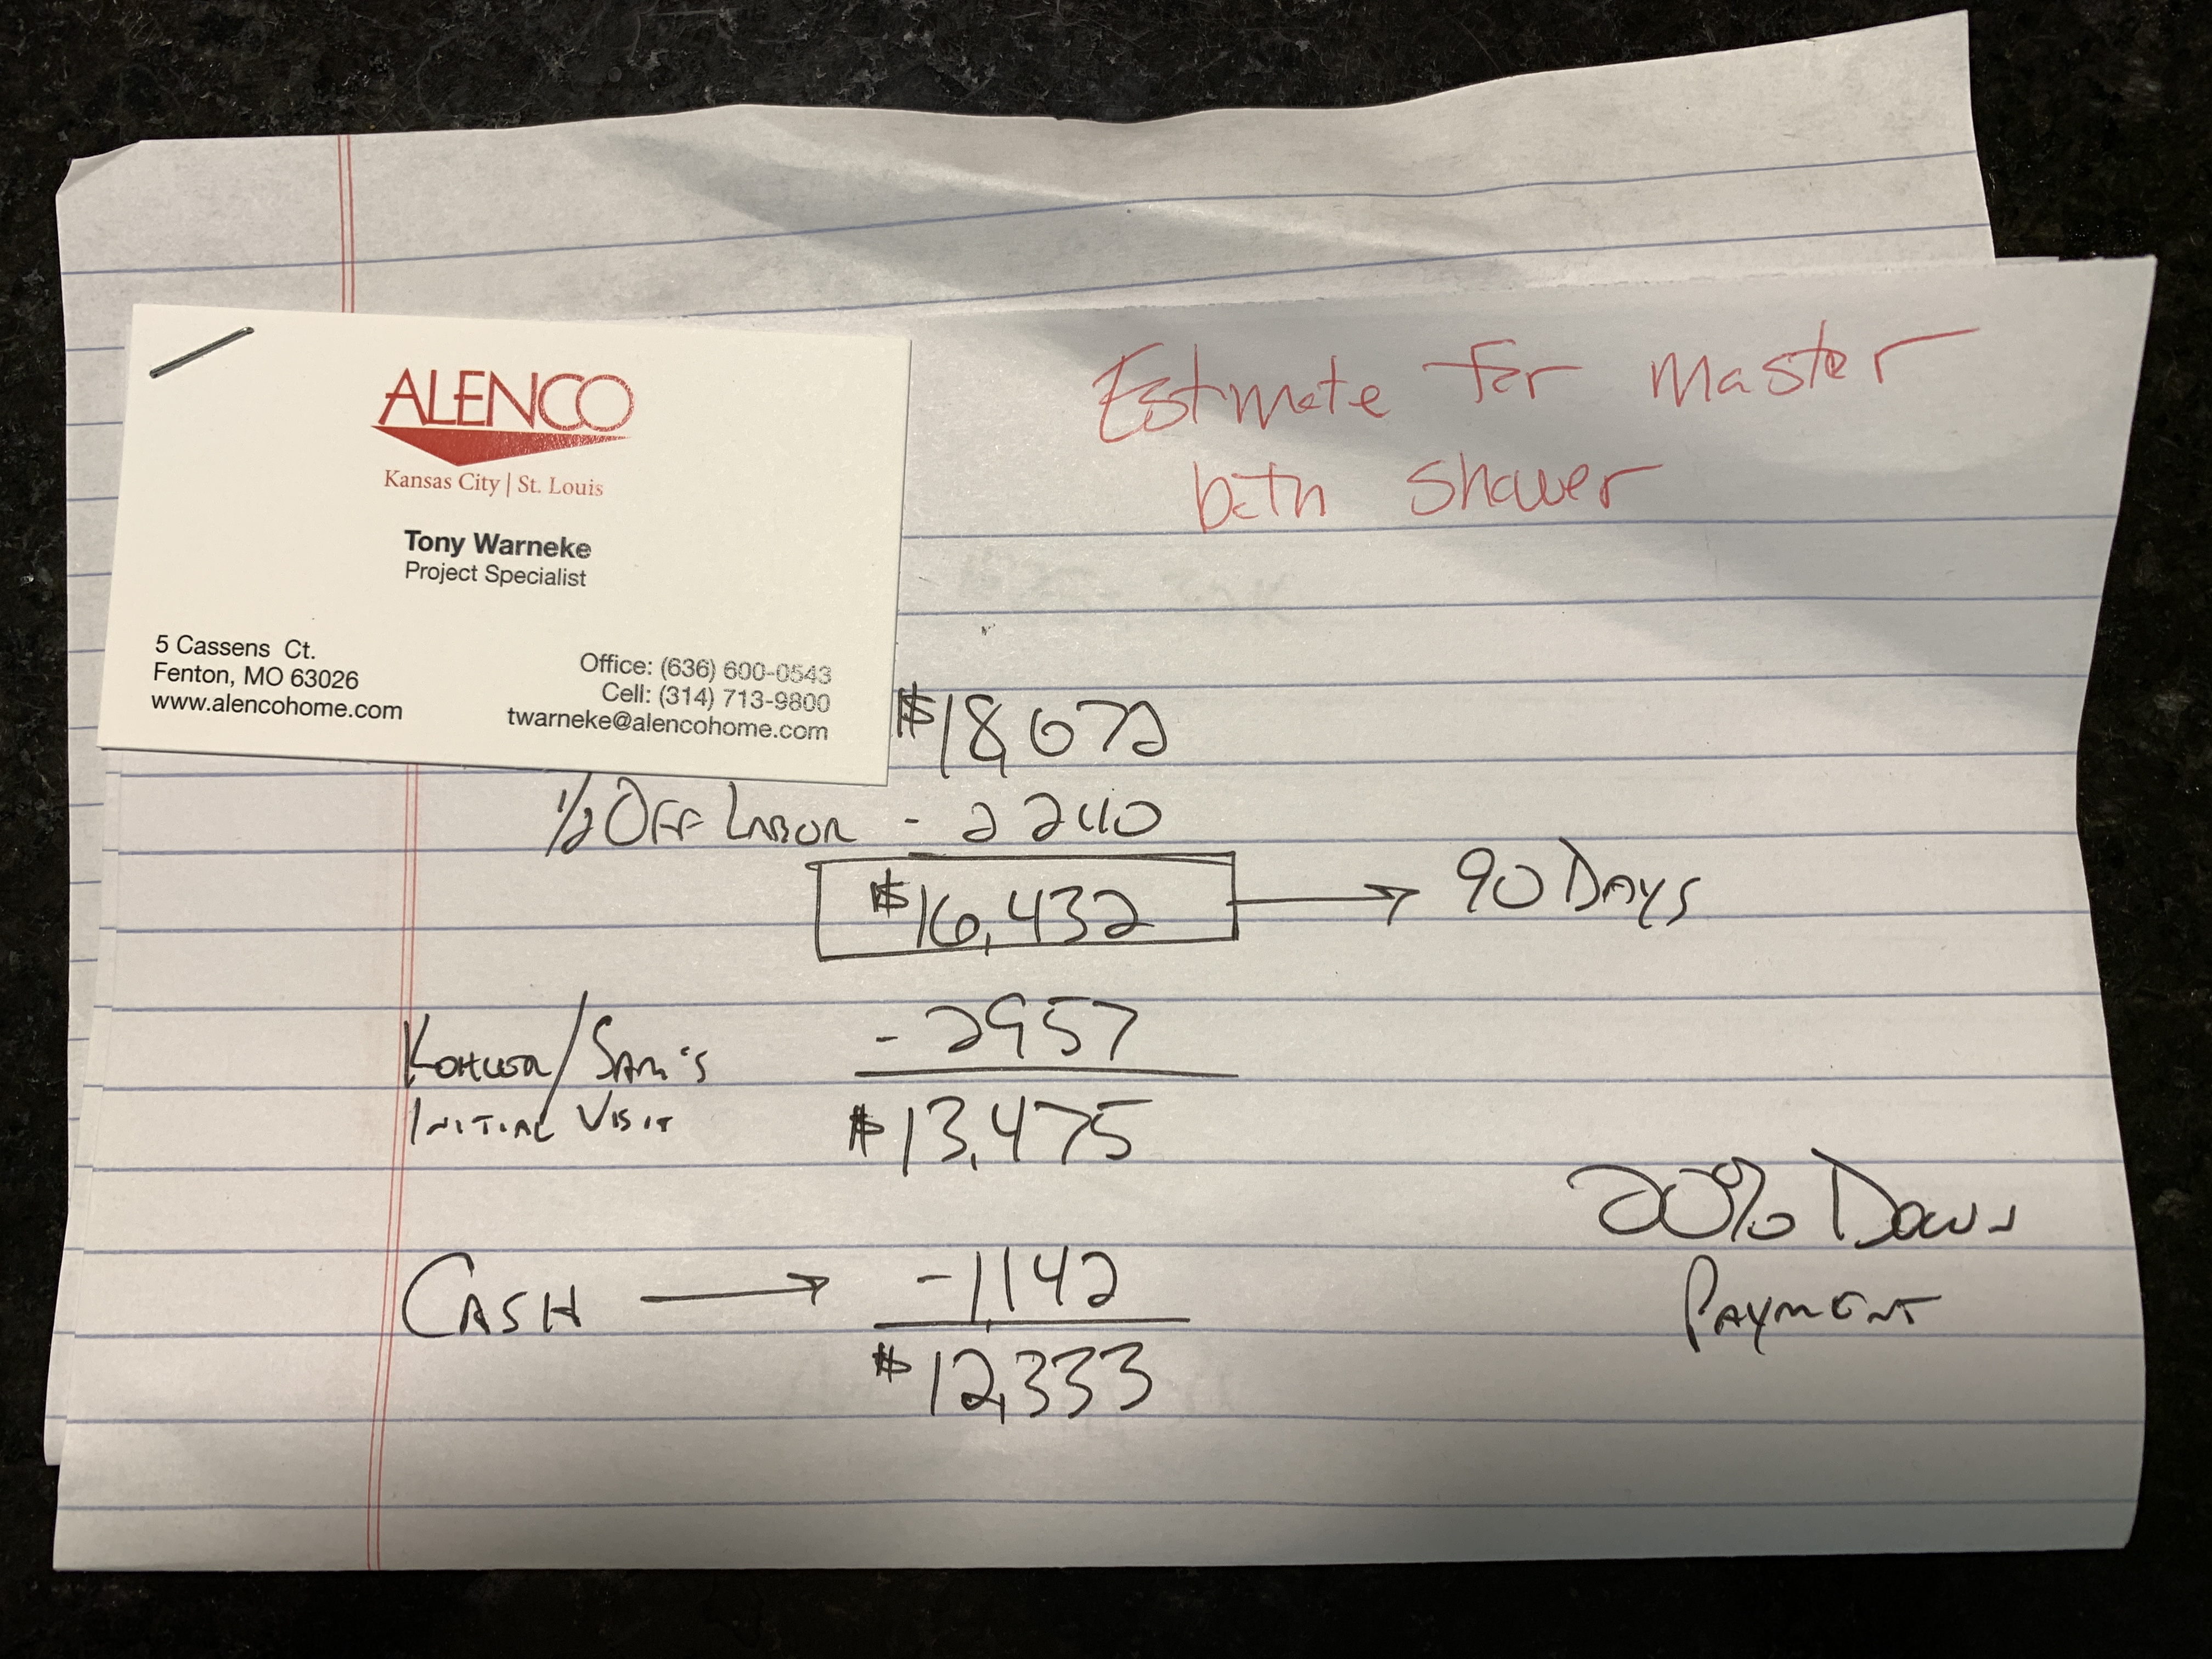 Estimate for Master
bath shower
ALENCO
Kansas City | St. Louis
Tony Warneke
Project Specialist
5 Cassens Ct.
Fenton, MO 63026
www.alencohome.com
Office: (636) 600-0543
Cell: (314) 713-9800
twarneke@alencohome.com
$18,672
1/2 OFF LABOR - 2240
$16,432 → 90 DAYS
- 2957
KOHLER/SAM'S
INITIAL VISIT
$13,475
20% DOWN
PAYMENT
CASH → -1,142
$12,333